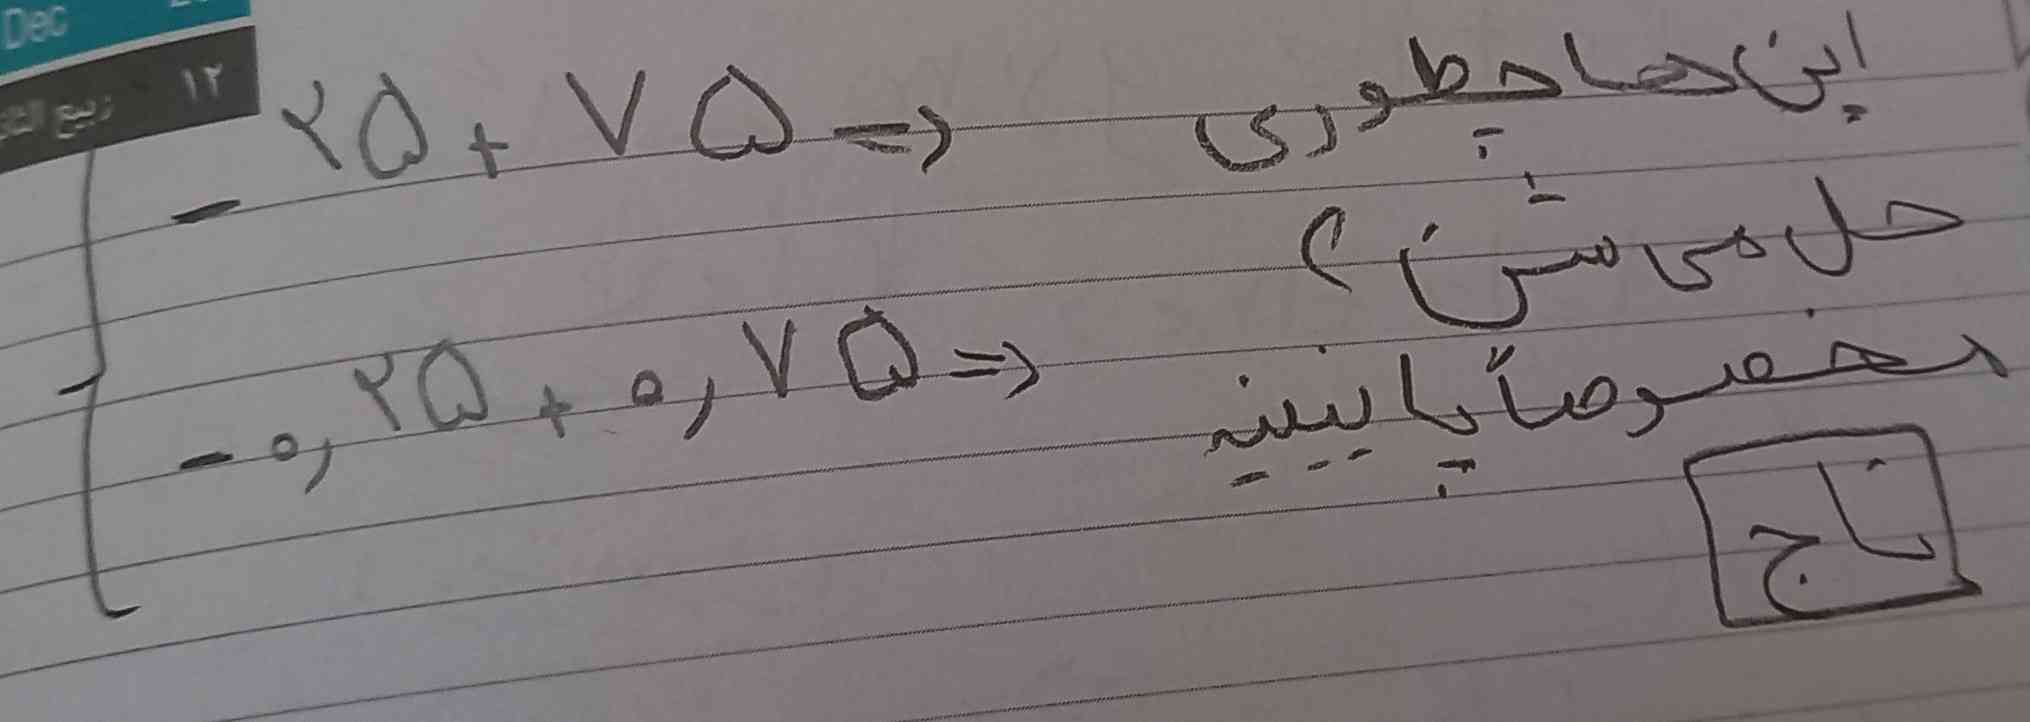 Dec
۱۲ ربیع الثا
این ها چطوری
- ۲۵ + ۷۵ =>
حل می شن ؟
مخصوصاً پایینیه
- ۰,۲۵ + ۰,۷۵ =>
تاج